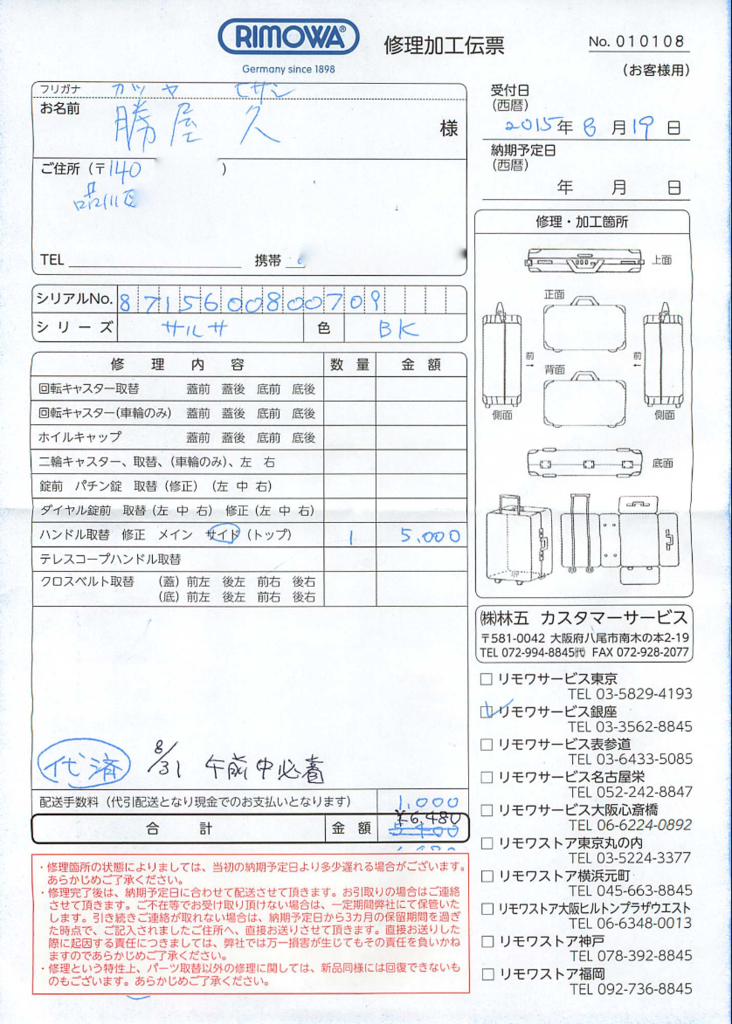 RIMOWA
Germany since 1898
修理加工伝票
No. 010108
(お客様用)
フリガナ カツヤ ヒサシ
お名前 勝屋 久 様
受付日
(西暦)
2015年 8 月 19 日
納期予定日
(西暦)
年 月 日
ご住所(〒140 )
品川区
TEL 携帯
シリアルNo. 8715600800709
シリーズ サルサ 色 BK
修理内容 数量 金額
回転キャスター取替 蓋前 蓋後 底前 底後
回転キャスター(車輪のみ) 蓋前 蓋後 底前 底後
ホイルキャップ 蓋前 蓋後 底前 底後
二輪キャスター、取替、(車輪のみ)、左 右
錠前 パチン錠 取替(修正)(左 中 右)
ダイヤル錠前 取替(左 中 右) 修正(左 中 右)
ハンドル取替 修正 メイン サイド(トップ) 1 5,000
テレスコープハンドル取替
クロスベルト取替 (蓋)前左 後左 前右 後右
(底)前左 後左 前右 後右
代済 8/31 午前中必着
配送手数料(代引配送となり現金でのお支払いとなります) 1,000
¥6,480
合計 金額 5,400
・修理箇所の状態によりましては、当初の納期予定日より多少遅れる場合がございます。
あらかじめご了承ください。
・修理完了後は、納期予定日に合わせて配送させて頂きます。お引取りの場合はご連絡
させて頂きます。ご不在等でお受け取り頂けない場合は、一定期間弊社にて保管いた
します。引き続きご連絡が取れない場合は、納期予定日から3カ月の保留期間を過ぎ
た時点で、ご記入されましたご住所へ、直接お送りさせて頂きます。直接お送りした
際に起因する責任につきましては、弊社では万一損害が生じてもその責任を負いかね
ますのであらかじめご了承ください。
・修理という特性上、パーツ取替以外の修理に関しては、新品同様には回復できないも
のもございます。あらかじめご了承ください。
修理・加工箇所
上面
正面
前
前
背面
側面
側面
底面
㈱林五 カスタマーサービス
〒581-0042 大阪府八尾市南木の本2-19
TEL 072-994-8845㈹ FAX 072-928-2077
リモワサービス東京
TEL 03-5829-4193
リモワサービス銀座
TEL 03-3562-8845
リモワサービス表参道
TEL 03-6433-5085
リモワサービス名古屋栄
TEL 052-242-8847
リモワサービス大阪心斎橋
TEL 06-6224-0892
リモワストア東京丸の内
TEL 03-5224-3377
リモワストア横浜元町
TEL 045-663-8845
リモワストア大阪ヒルトンプラザウエスト
TEL 06-6348-0013
リモワストア神戸
TEL 078-392-8845
リモワストア福岡
TEL 092-736-8845